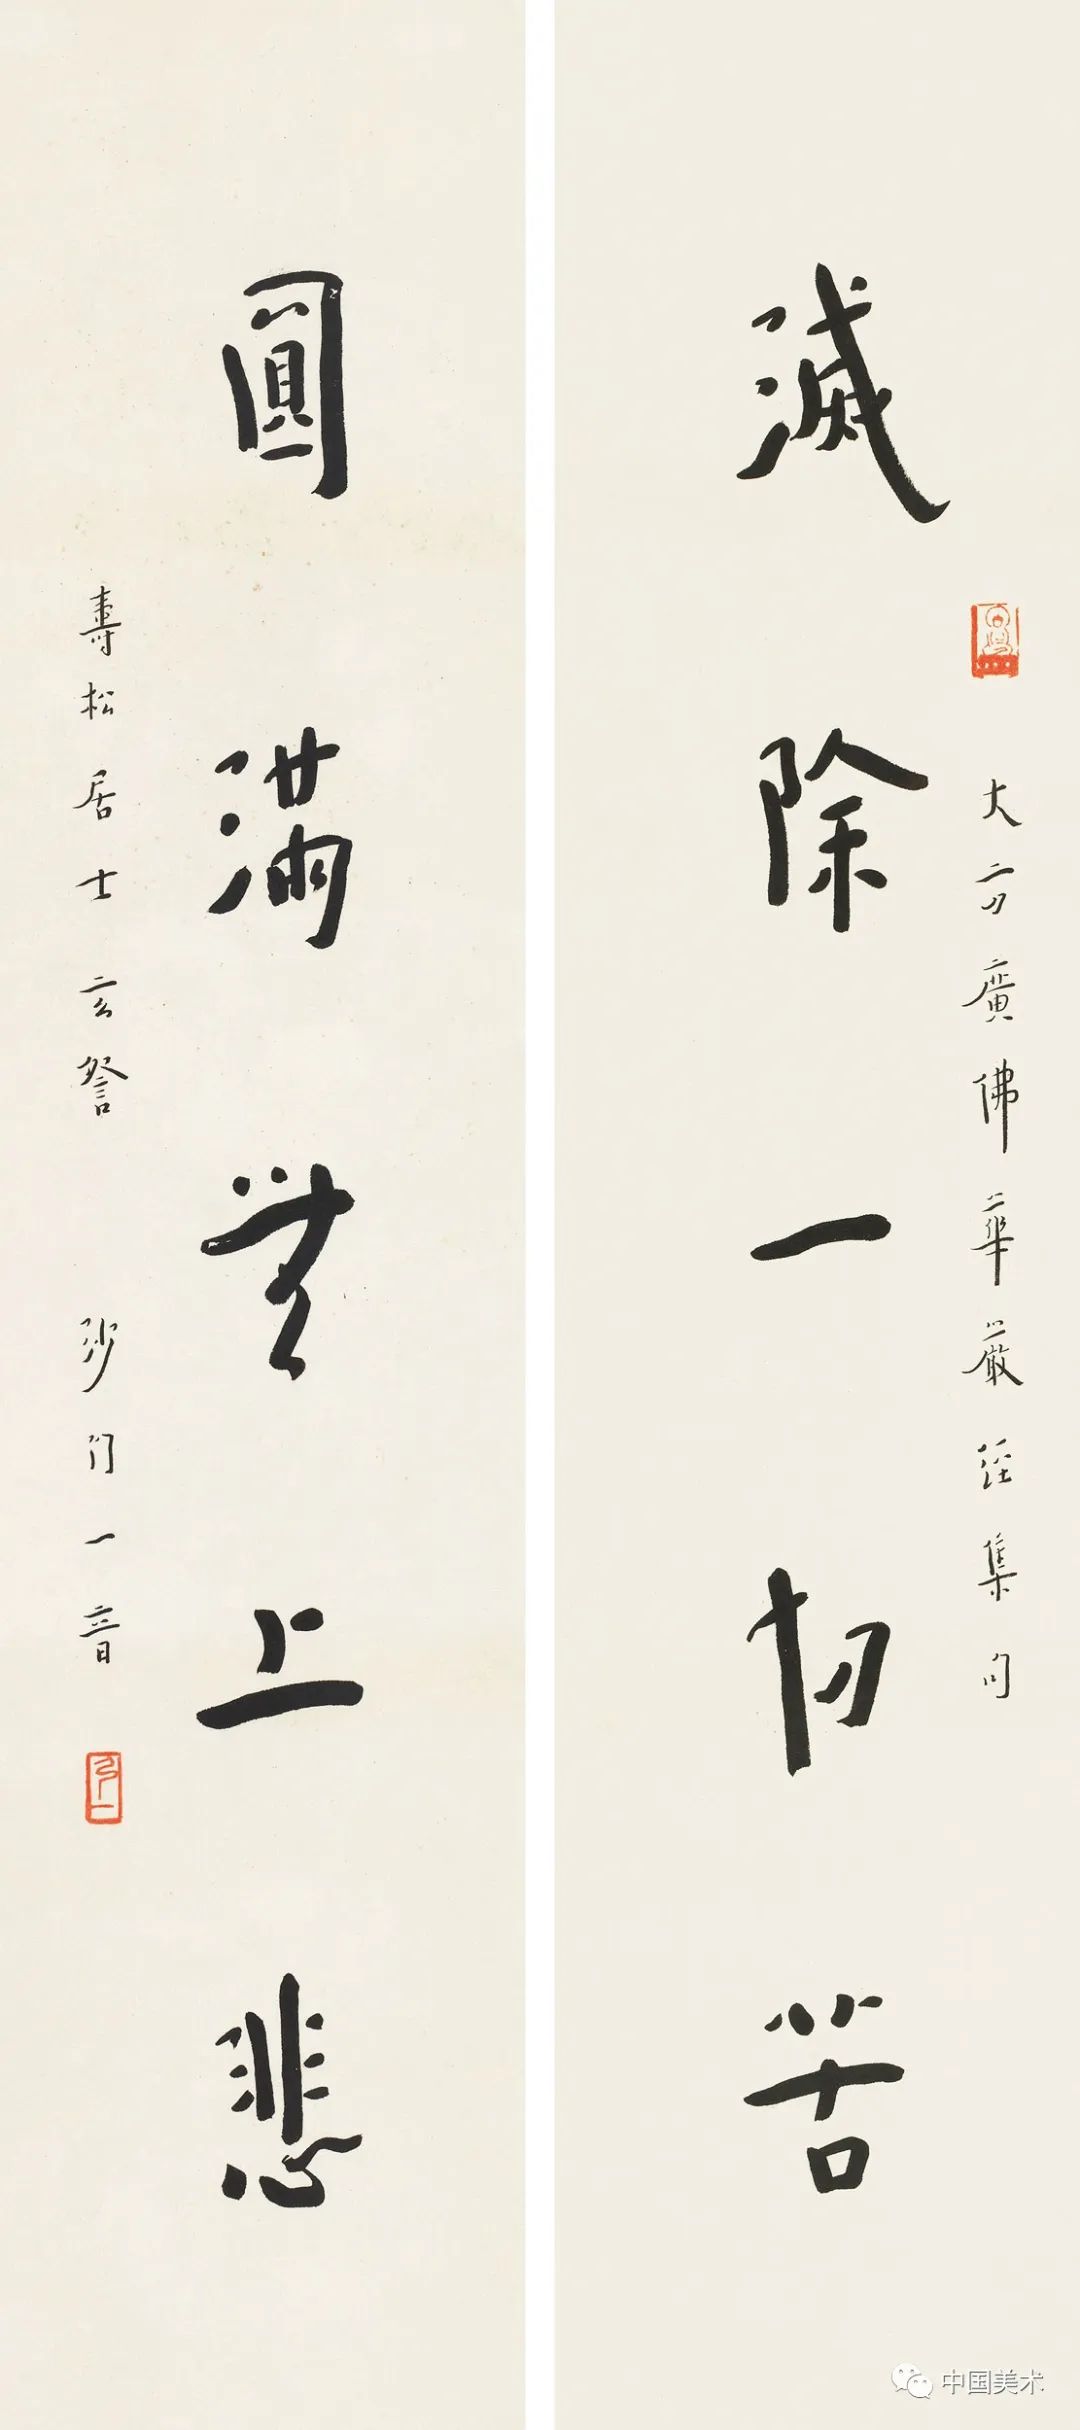 大方廣佛華嚴經集句
滅除一切苦
圓滿無上悲
壽松居士玄詧
沙门一音
中国美术